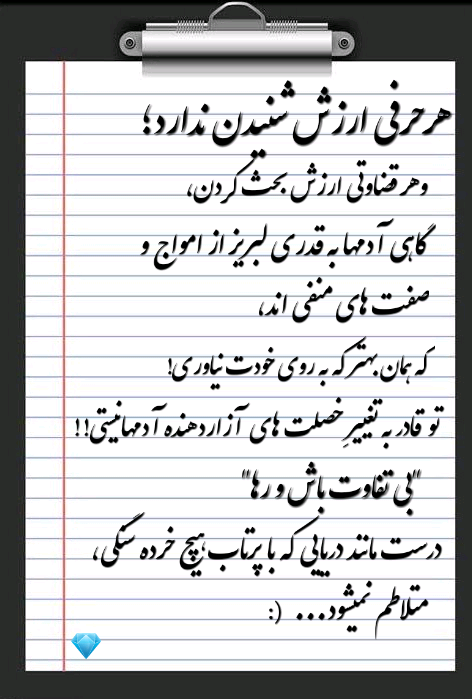 هر حرفی ارزش شنیدن ندارد؛
و هر قضاوتی ارزش بحث کردن،
گاهی آدمها به قدری لبریز از امواج و
صفت های منفی اند،
که همان بهتر که به روی خودت نیاوری!
تو قادر به تغییرِ خصلت های آزاردهنده آدمها نیستی!!
"بی تفاوت باش و رها"
درست مانند دریایی که با پرتاب هیچ خرده سنگی،
متلاطم نمیشود... (: